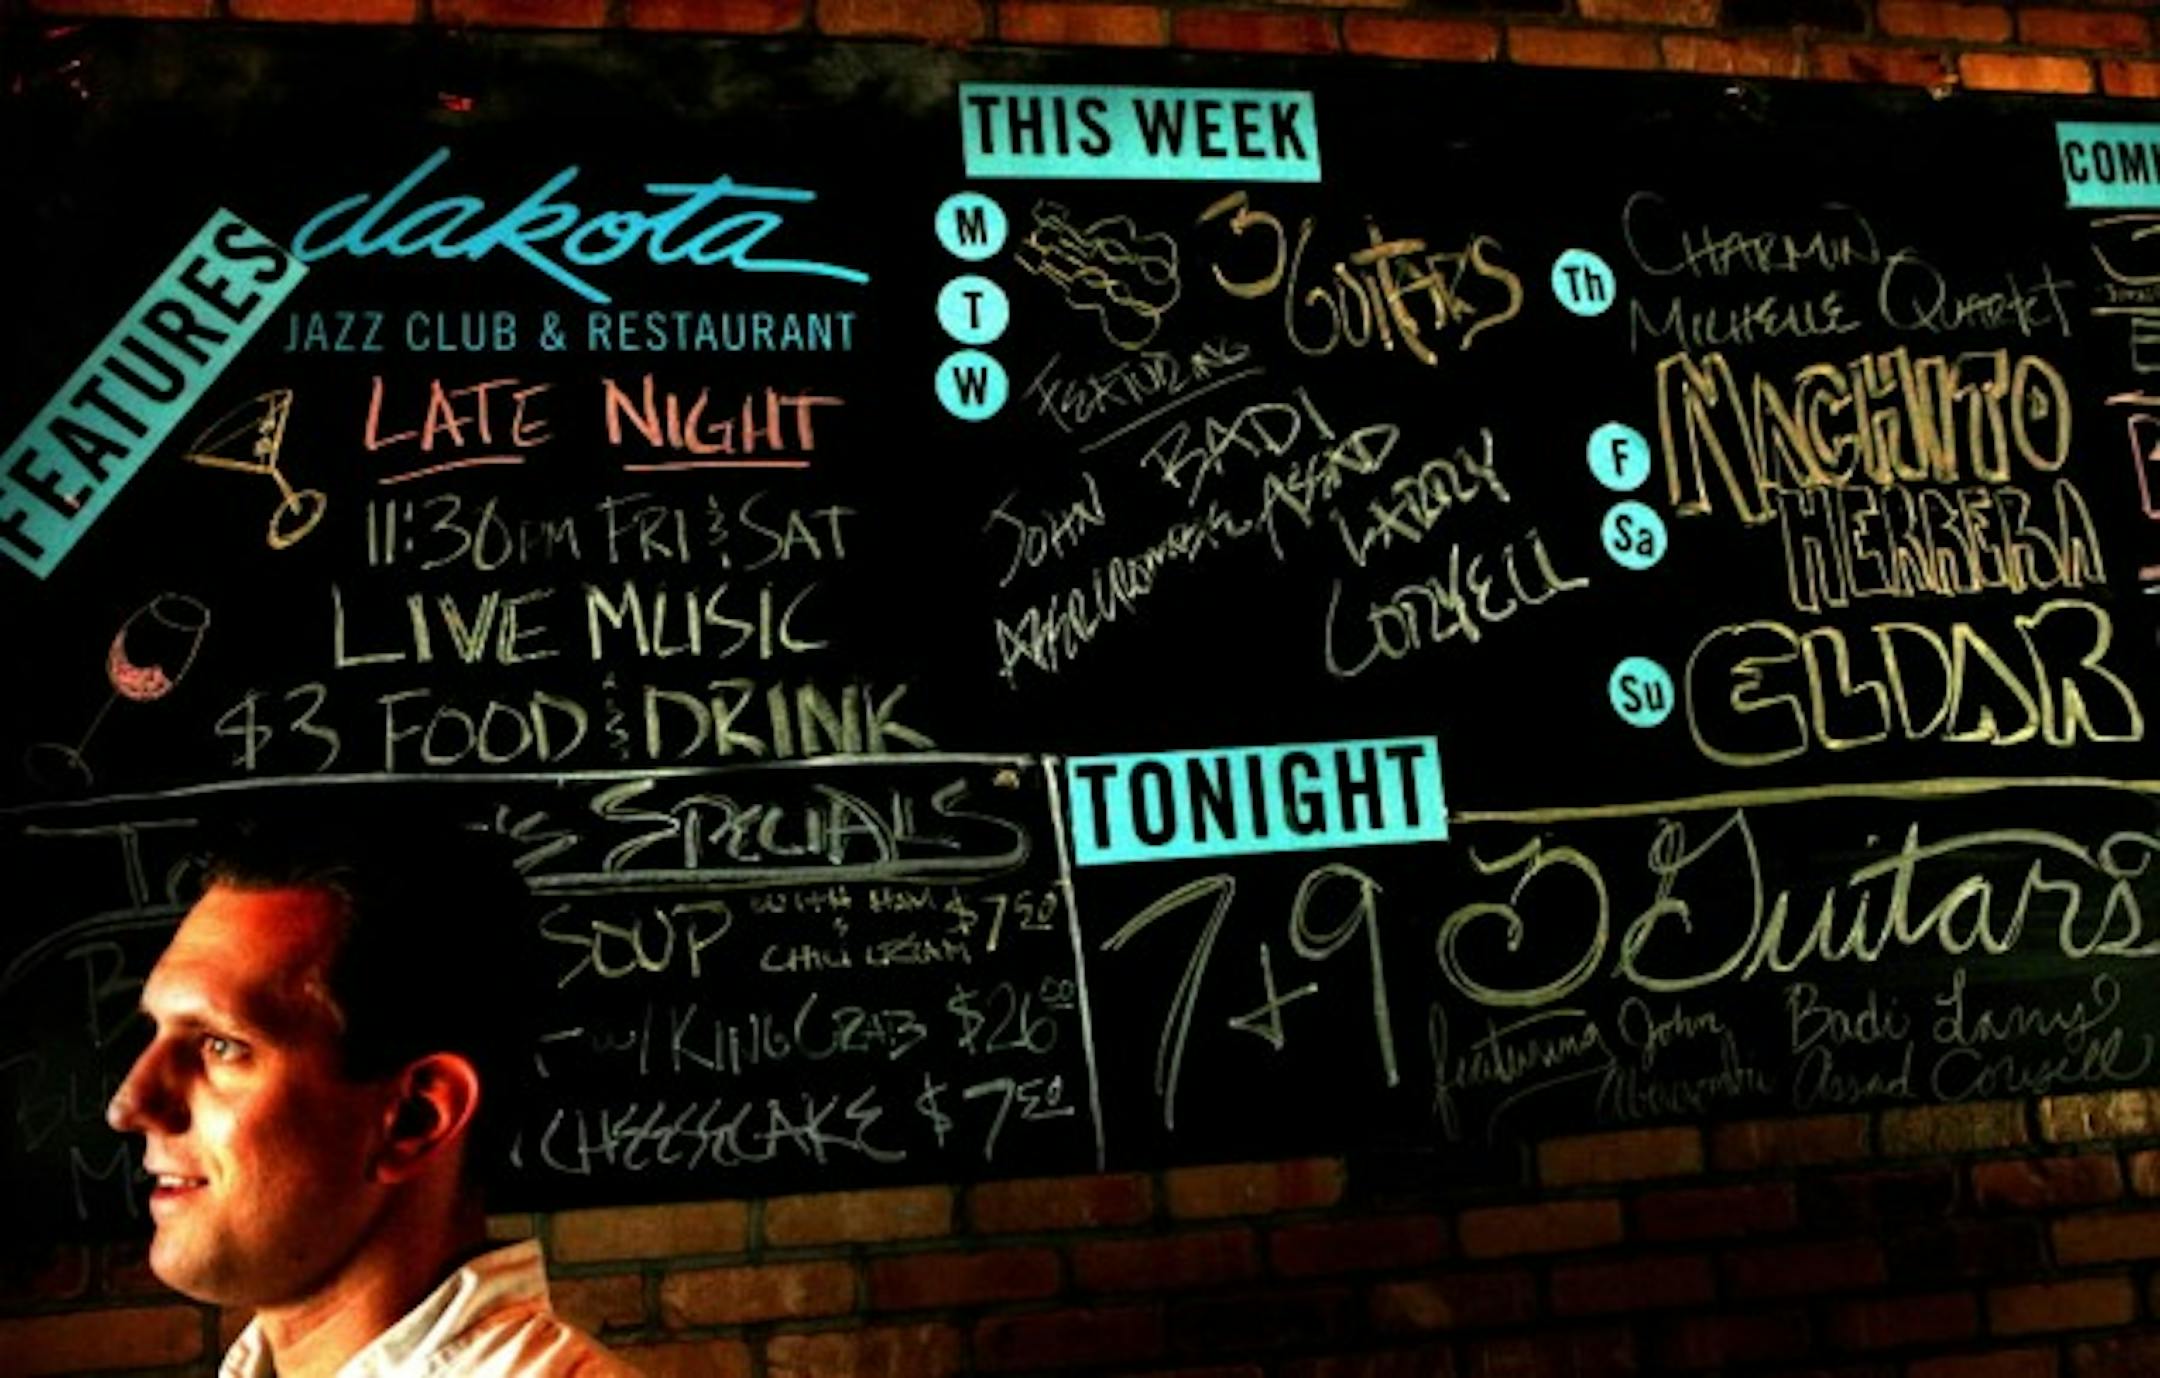 FEATURES
dakota
JAZZ CLUB & RESTAURANT
LATE NIGHT
11:30PM FRI & SAT
LIVE MUSIC
$3 FOOD & DRINK
THIS WEEK
M
T
W
3 GUITARS
FEATURING
JOHN
ABERCROMBIE
BADI
ASSAD
LARRY
CORYELL
Th
CHARMIN
MICHELLE QUARTET
F
Sa
MACHITO
HERRERA
Su
ELDAR
SPECIALS
SOUP WITH HAM & CHILI CREAM $7.50
W/ KING CRAB $26.00
CHEESECAKE $7.50
TONIGHT
7+9
3 Guitars
featuring John Badi Larry
Abercrombie Assad Coryell